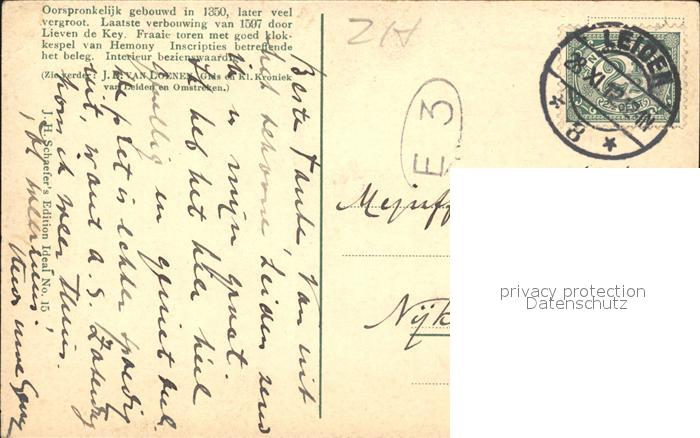 Oorspronkelijk gebouwd in 1350, later veel
vergroot. Laatste verbouwing van 1597 door
Lieven de Key. Fraaie toren met goed klok-
kespel van Hemony Inscripties betreffende
het beleg. Interieur bezienswaardig.
(Zie verder: J. B. VAN LOENEN, Gids en Kl. Kroniek
van Leiden en Omstreken.)
J. H. Schaefer's Edition Ideal No. 15
Beste Tante, Van uit
het schoone Leiden zend
ik u mijn groet.
Ik heb het hier heel
gezellig en geniet veel.
De pret is echter spoedig
uit, want a.s. Zaterdag
kom ik weer thuis.
LEIDEN
28 XI
8
E 3
Mejuff
Nijk
privacy protection
Datenschutz